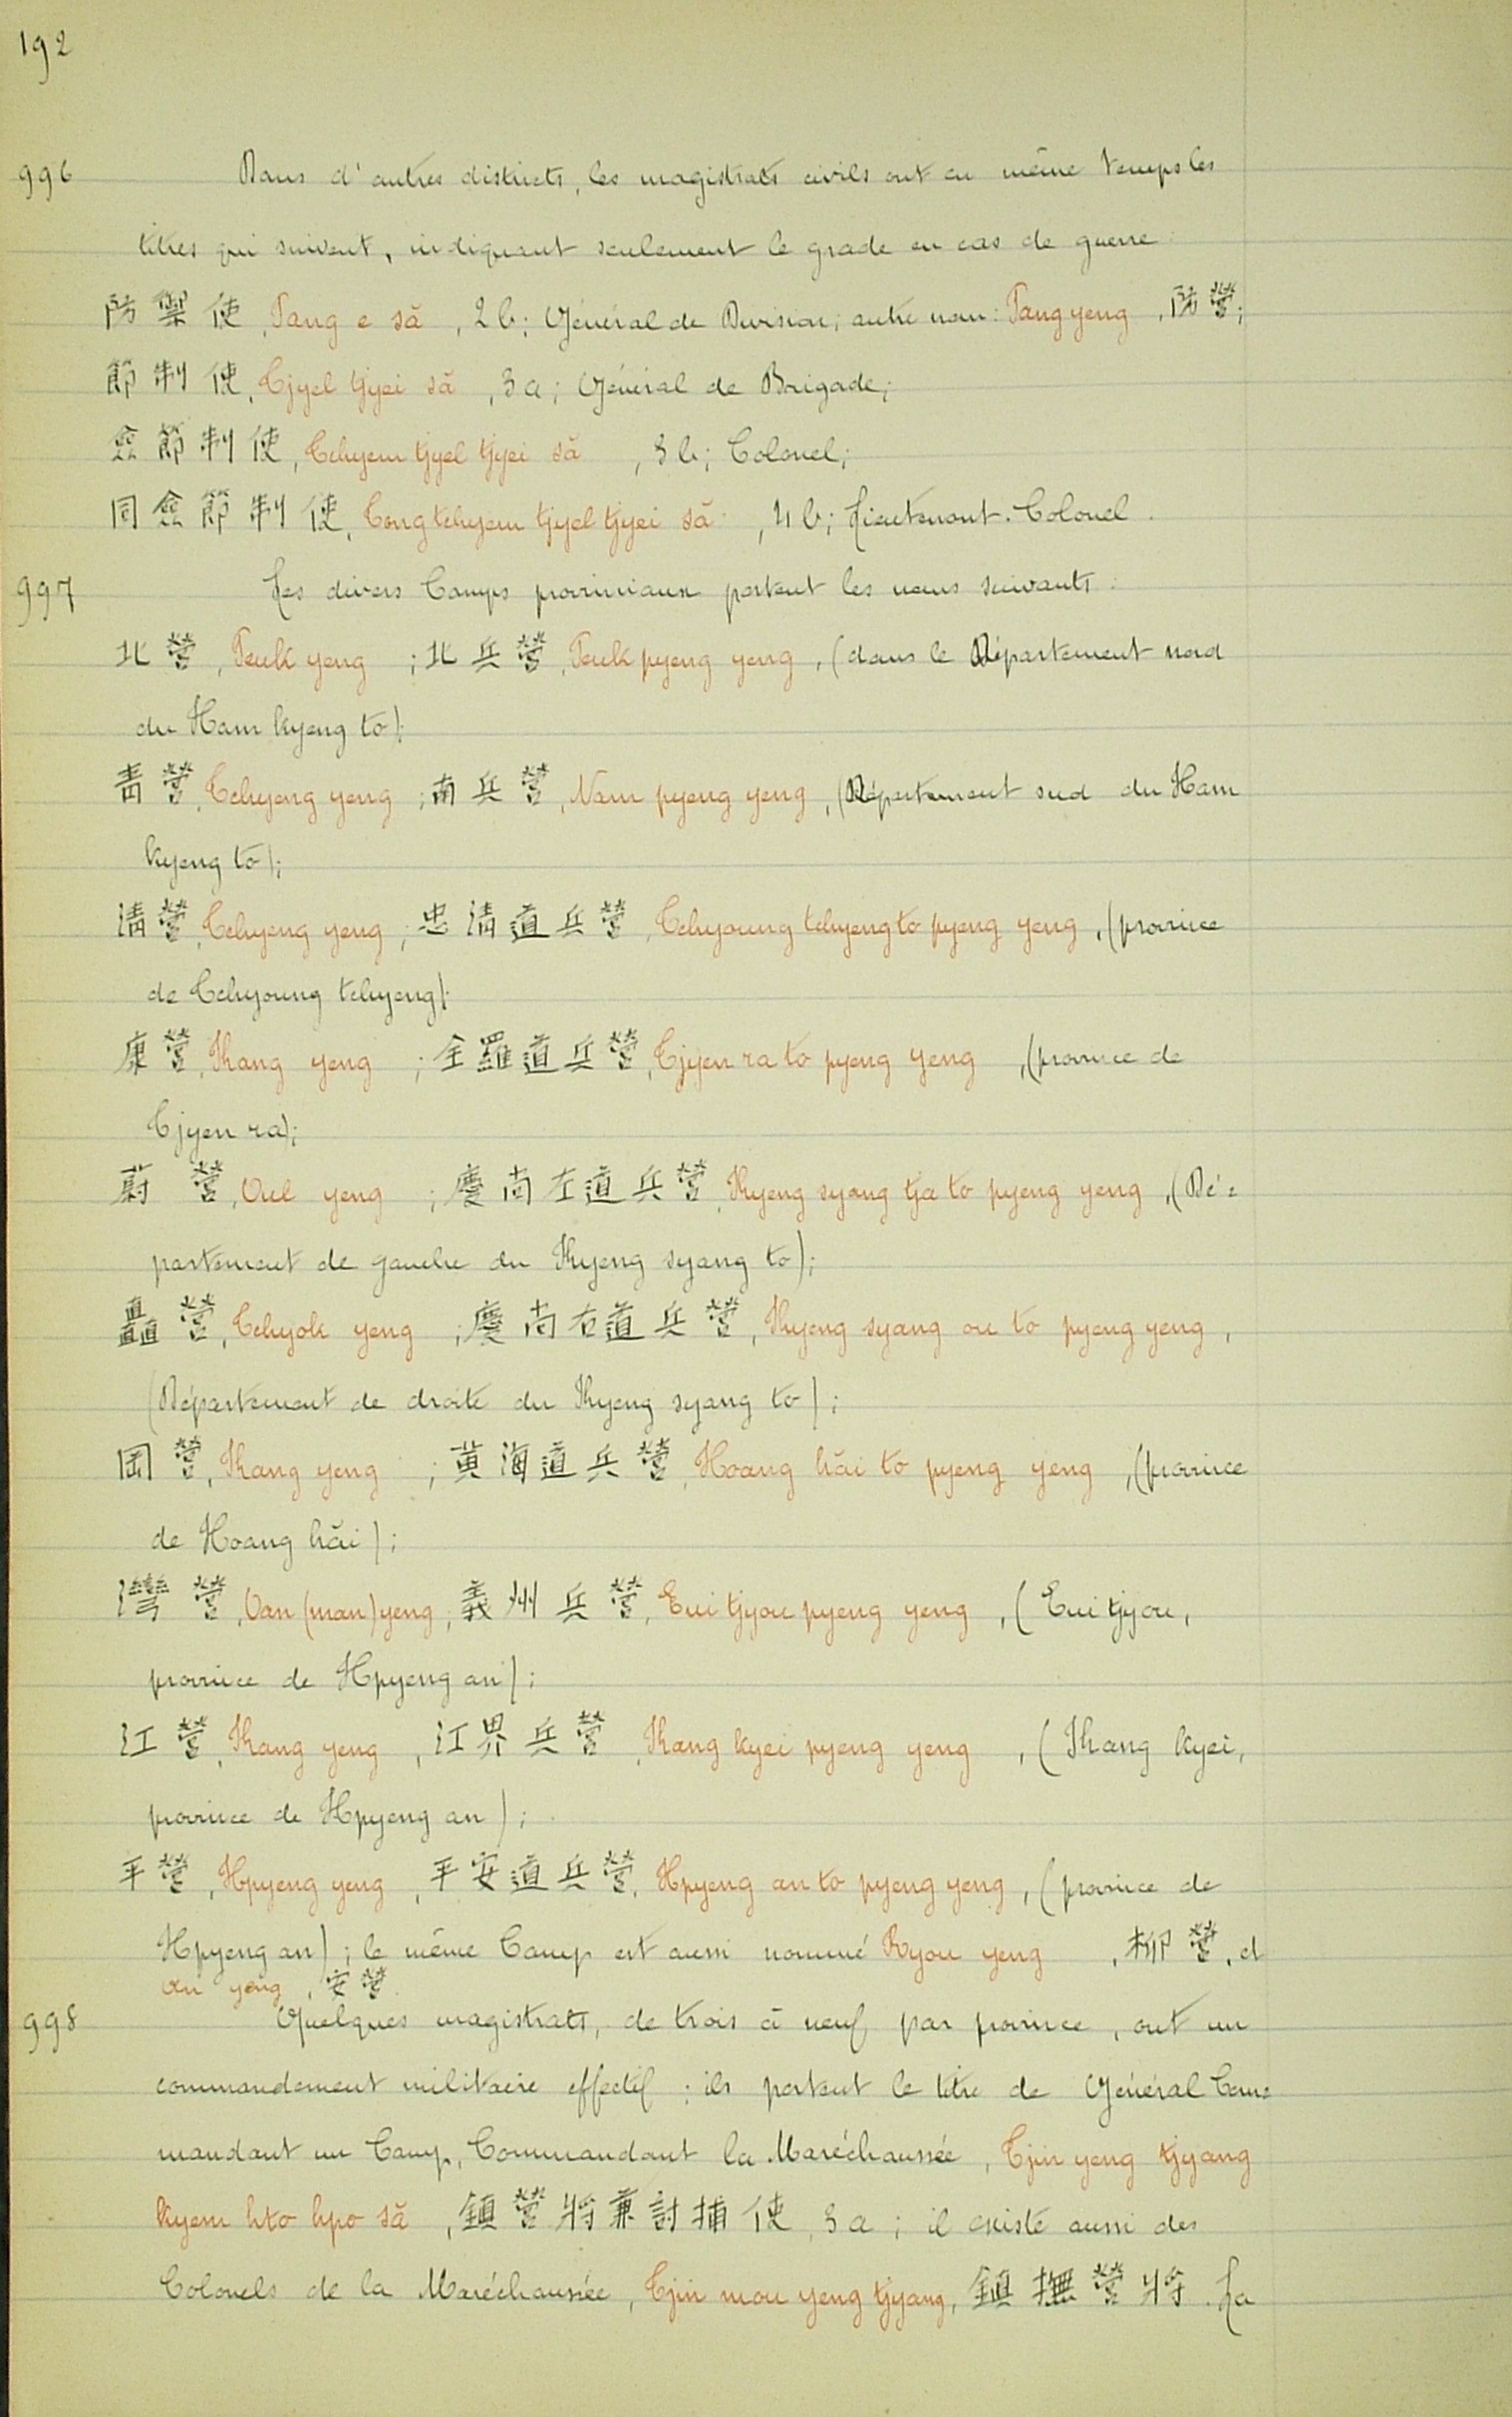 192
996 Dans d'autres districts, les magistrats civils ont en même temps les
titres qui suivent, indiquant seulement le grade en cas de guerre:
防禦使, Pang e să, 2b; Général de Division; autre nom: Pang yeng, 防營;
節制使, Tjyel tjyei să, 3a; Général de Brigade;
僉節制使, Tchyem tjyel tjyei să, 3b; Colonel;
同僉節制使, Tong tchyem tjyel tjyei să, 4b; Lieutenant-Colonel.
997 Les divers Camps provinciaux portent les noms suivants:
北營, Peuk yeng; 北兵營, Peuk pyeng yeng, (dans le Département nord
du Ham kyeng to);
靑營, Tchyeng yeng; 南兵營, Nam pyeng yeng, (Département sud du Ham
kyeng to);
淸營, Tchyeng yeng; 忠淸道兵營, Tchyoung tchyeng to pyeng yeng, (province
de Tchyoung tchyeng);
康營, Kang yeng; 全羅道兵營, Tjyen ra to pyeng yeng, (province de
Tjyen ra);
蔚營, Oul yeng; 慶尙左道兵營, Kyeng syang tja to pyeng yeng, (Dé=
partement de gauche du Kyeng syang to);
矗營, Tchyok yeng; 慶尙右道兵營, Kyeng syang ou to pyeng yeng,
(Département de droite du Kyeng syang to);
岡營, Kang yeng; 黃海道兵營, Hoang hăi to pyeng yeng, (province
de Hoang hăi);
灣營, Oan (man) yeng; 義州兵營, Eui tjyou pyeng yeng, (Eui tjyou,
province de Hpyeng an);
江營, Kang yeng, 江界兵營, Kang kyei pyeng yeng, (Kang kyei,
province de Hpyeng an);
平營, Hpyeng yeng, 平安道兵營, Hpyeng an to pyeng yeng, (province de
Hpyeng an); le même Camp est aussi nommé Ryou yeng, 柳營, et
An yeng, 安營.
998 Quelques magistrats, de trois à neuf par province, ont un
commandement militaire effectif: ils portent le titre de Général Com=
mandant un Camp, Commandant la Maréchaussée, Tjin yeng tjyang
kyem hto hpo să, 鎭營將兼討捕使, 3a; il existe aussi des
Colonels de la Maréchaussée, Tjin mou yeng tjyang, 鎭撫營將. La